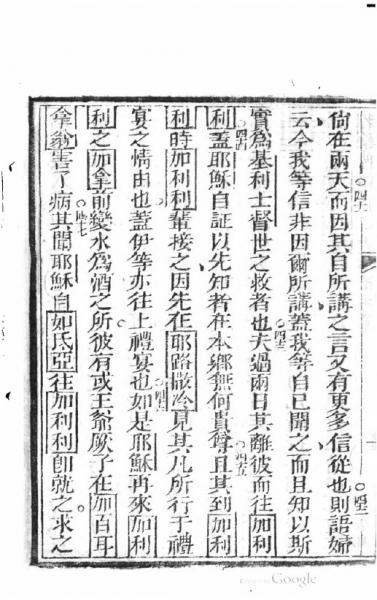 倘在兩天四一而因其自所講之言又有更多信從也四二則語婦
云今我等信非因爾所講蓋我等自已聞之而且知以斯
實爲基利士督世之救者也四三夫過兩日其離彼而往加利
利四四蓋耶穌自証以先知者在本鄉無何貴尊四五且其到加利
利時加利利輩接之因先在耶路撒冷見其凡所行于禮
宴之情由也蓋伊等亦往上禮宴也四六如是耶穌再來加利
利之加拿前變水爲酒之所彼有或王爺厥子在加百耳
拿翁害了病四七其聞耶穌自如氐亞往加利利卽就之求之
Google